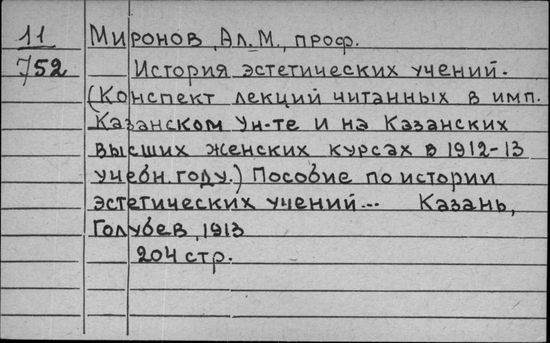 11 Миронов, Ал. М., проф.
752 История эстетических учений.
(Конспект лекций читанных в имп.
Казанском Ун-те и на Казанских
высших женских курсах в 1912-13
учебн. году.) Пособие по истории
эстетических учений... Казань,
Голубев, 1913
204 стр.